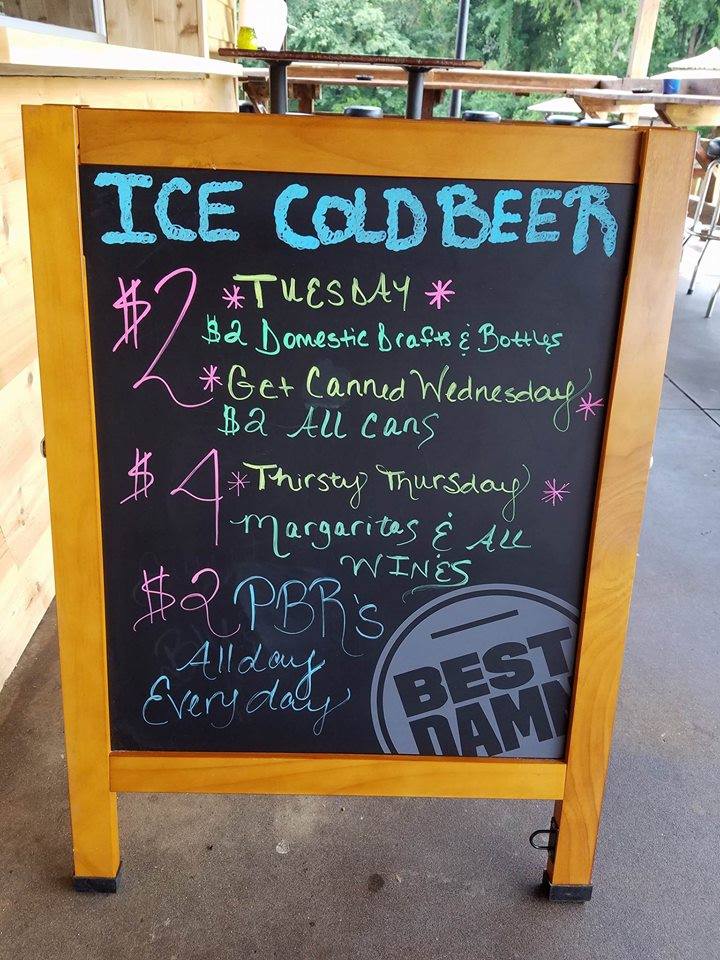 ICE COLD BEER
$2 *TUESDAY*
$2 Domestic Drafts & Bottles
*Get Canned Wednesday*
$2 All Cans
$4 *Thirsty Thursday*
Margaritas & All
WINES
$2 PBR's
All day
Every day
BEST
DAMN